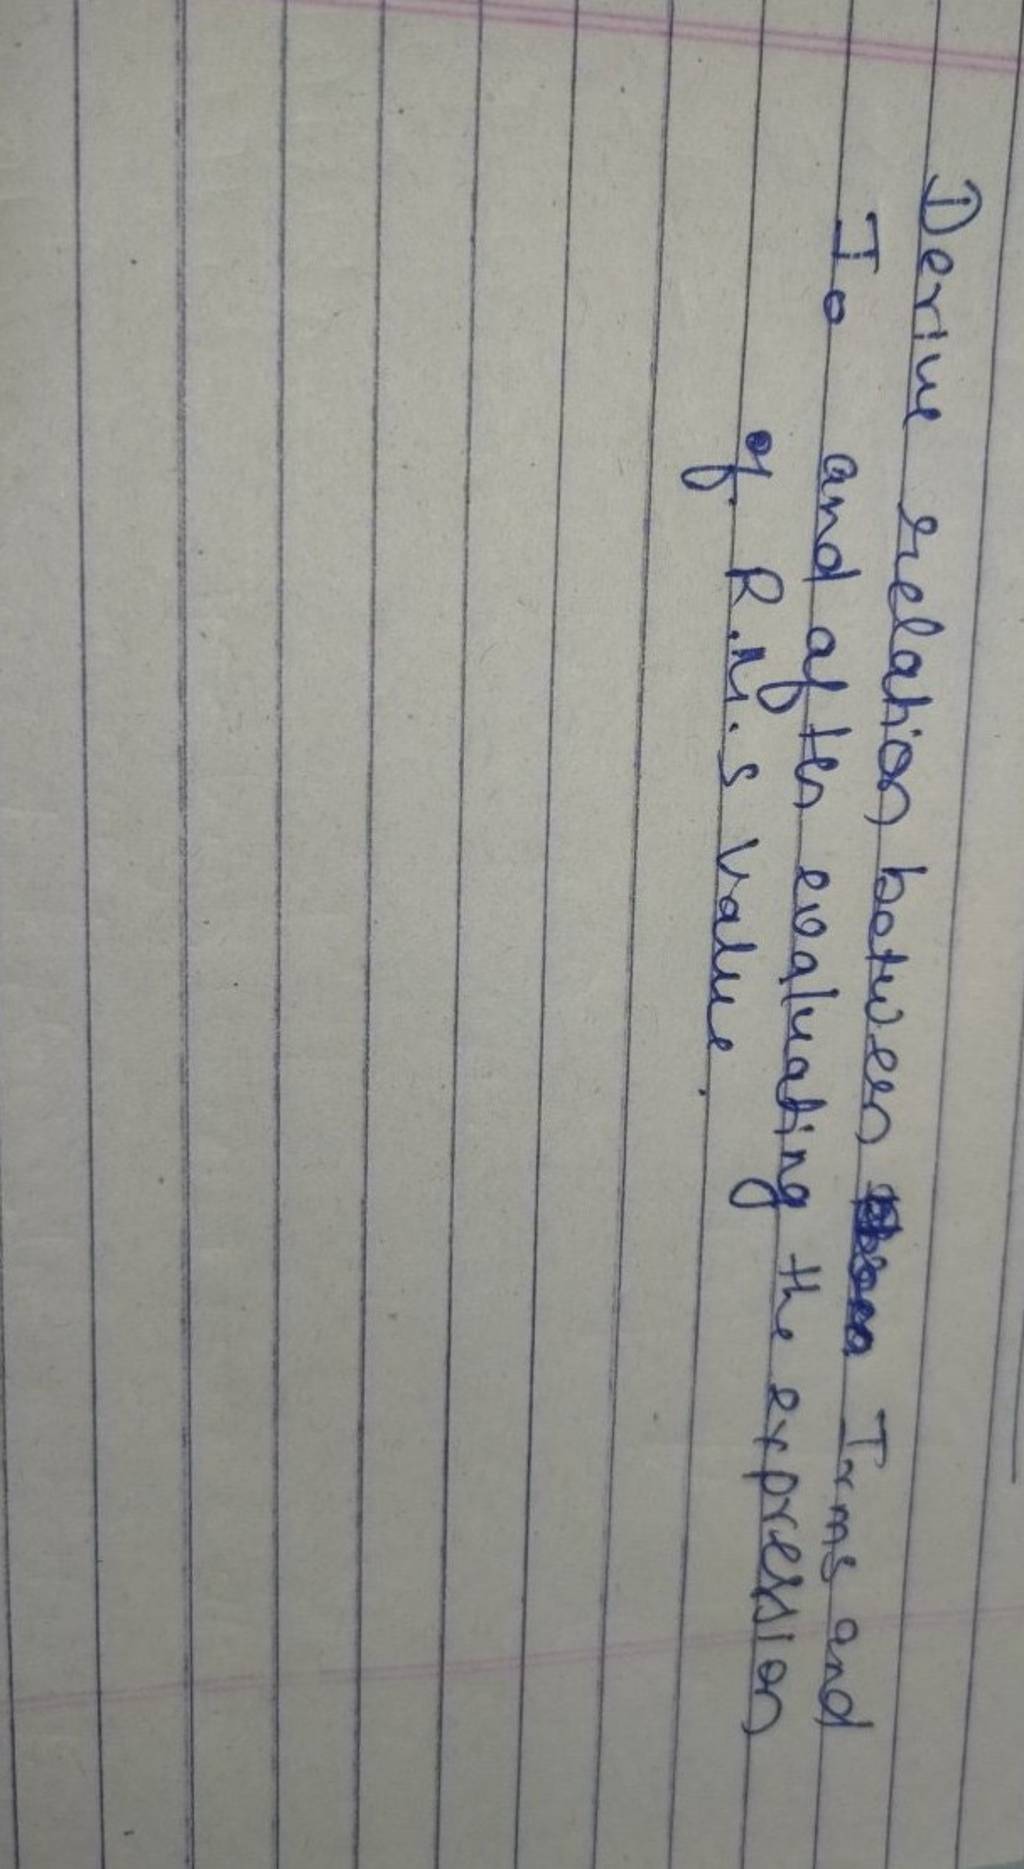 Derive relation between Irms and
Io and after evaluating the expression
of R.M.S value.